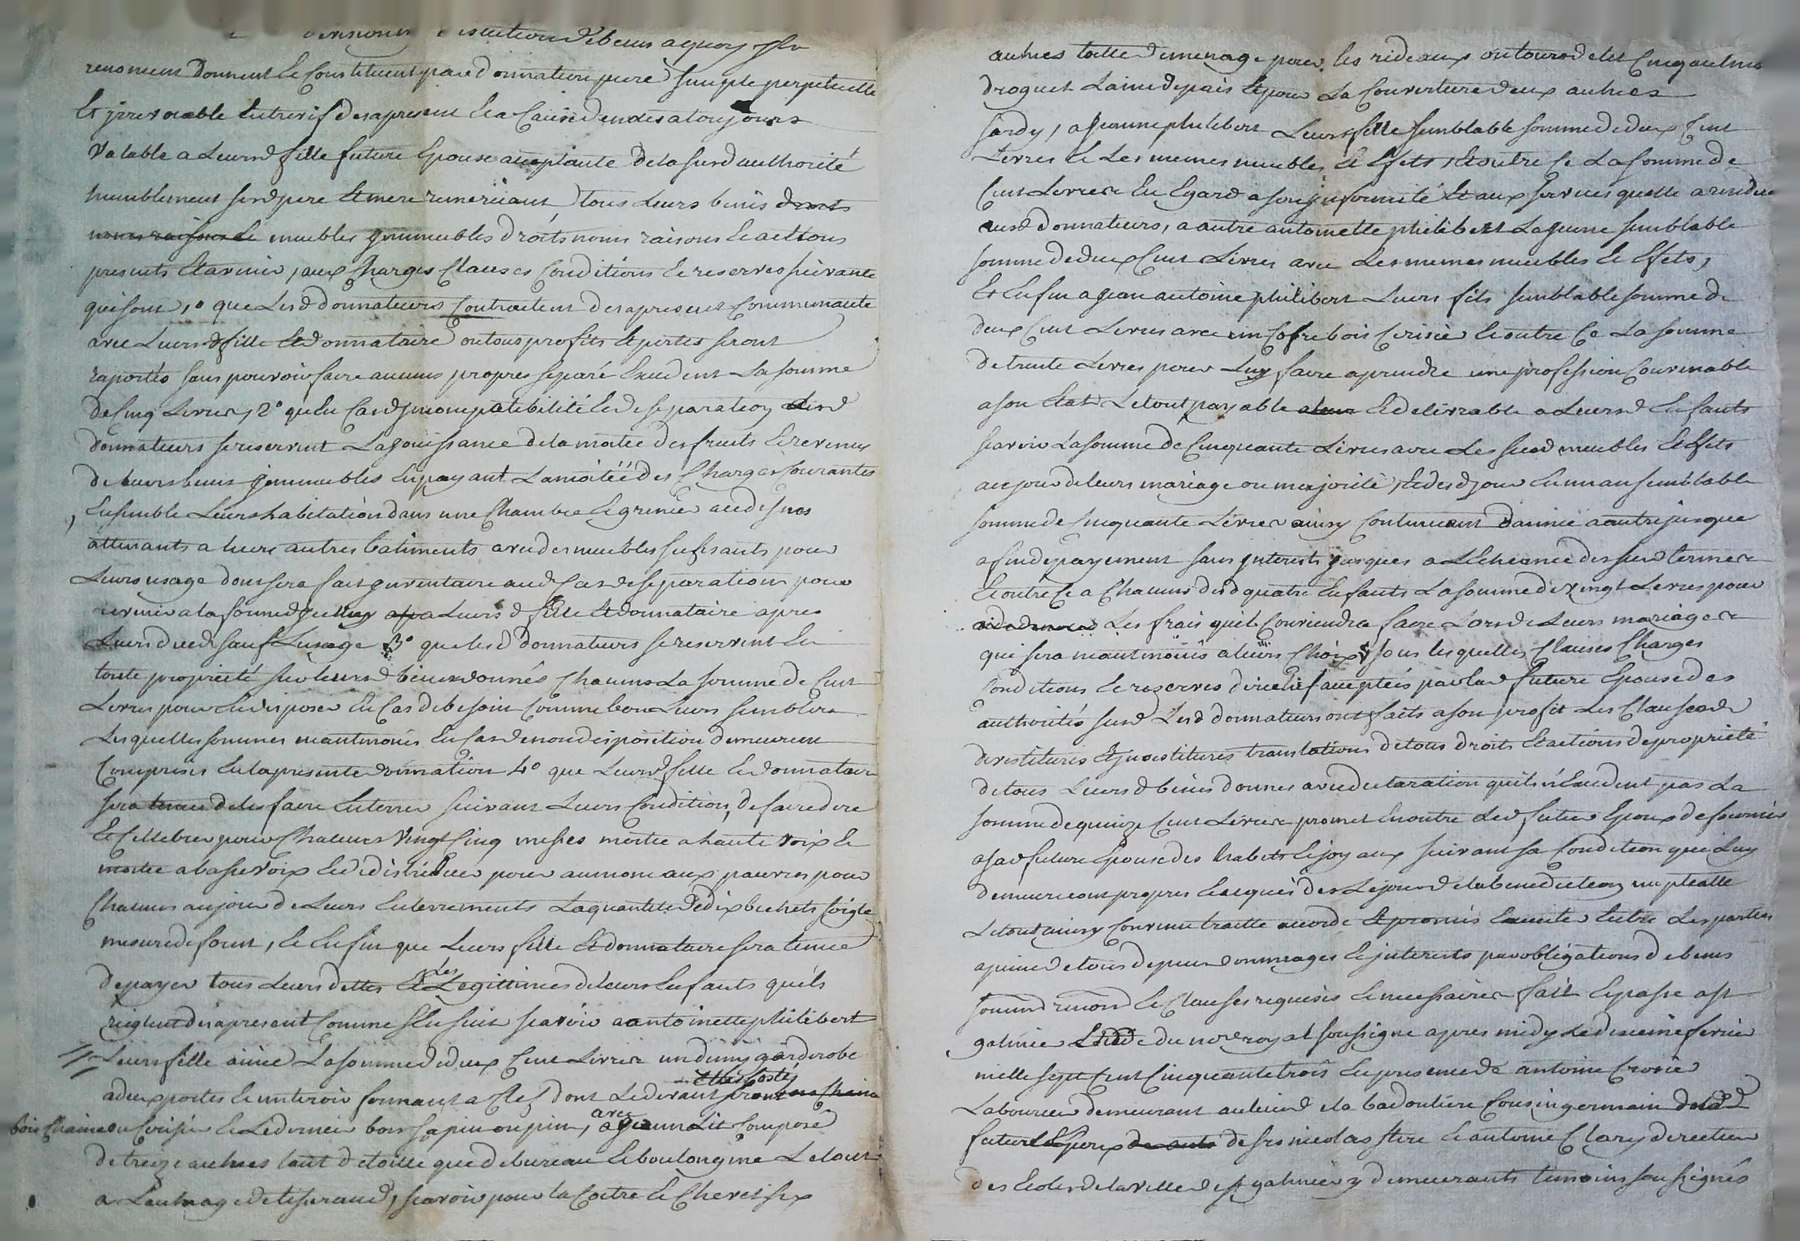 renoncent donnent et constituent par donnation pure simple perpetuelle
et irrevocable entrevif des a present et a cause d'en des a toujours
valable a leurd fille future epouse acceptante de la susd authorité
humblement sesd pere et mere remerciant tous leurs biens droits
noms raisons et meubles immeubles droits noms raisons et actions
presents et avenir, aux charges clauses conditions et reserves suivante
qui sont, 1° que lesd donnateurs contractent des a present communauté
avec leursd fille et donnataire ou tous profits et pertes seront
raportés sans pouvoir faire aucuns propres separé excedent la somme
de cinq livres, 2° qu'en cas d'incompatibilité et de separation lesd
donnateurs se reservent la jouissance de la moitée des fruits et revenus
de leurs biens immeubles en payant la moitée des charges courantes
ensemble leurs habitation dans une chambre et grenier au dessus
attenants a leurs autres batiments avec des meubles sufisants pour
leurs usage dont sera fait inventaire aud cas de separation pour
revenir a la forme d'iceluy a leurs d fille et donnataire apres
leurs deced sauf l'usage 3° que lesd donnateurs se reservent en
toute propriété sur leursd biens donnés chacuns la somme de cent
livres pour en disposer en cas de besoin comme bon leurs semblera
lesquelles sommes neantmoins en cas de non disposition demeureront
comprises en la presente donnation 4° que leursd fille et donnataire
sera tenue de les faire enterrer suivant leurs condition, de faire dire
et cellebrer pour chacuns vingt cinq messes moitié a haute voix et
moitié a basse voix et de distribuer pour aumone aux pauvres pour
chacuns au jour de leurs enterrements la quantité de dix bichets seigle
mesure de forest, et enfin que leurs fille et donnataire sera tenue
de payer tous leurs dettes et les legittimes de leurs enfants qu'ils
reglent des a present comme s'en suit scavoir a antoinette philibert
leurs fille ainée la somme de deux cent livres un demy garderobe
a deux portes et un tiroir fermant a clef dont le devant
et les costés
bois chaine ou cerisier et le dernier bois sapin ou pin, avec un lit composé
de treize aulnes tant de toille que de bureau et boulongine le tout
a l'aulnage de tisserand, scavoir pour la coitre et chevet six
aulnes toille de menage pour les rideaux ou tours de lit cinq aulnes
droguet laine du païs et pour la couverture deux aulnes
sardy, a jeanne philibert leurs fille semblable somme de deux cent
livres et les memes meubles et effets, et outre ce la somme de
cent livres en egard a son infirmité et aux services quelle a rendus
ausd donnateurs, a autre antoinette philibert la jeune semblable
somme de deux cent livres avec les memes meubles et effets,
et enfin a jean antoine philibert leurs fils semblable somme de
deux cent livres avec un cofre bois cerisier et outre ce la somme
de trente livres pour luy faire aprendre une profession convenable
a son etat le tout payable et delivrable a leursd enfants
scavoir la somme de cinquante livres avec les susd meubles et effets
au jour de leurs mariage ou majorité, et dud jour en un an semblable
somme de cinquante livres ainsy continuant d'année a autre jusque
a fin de payement sans interests jusques a l'echeance dessusd termes
et outre ce a chacuns desd quatre enfants la somme de vingt livres pour
les frais qu'il conviendra faire lors de leurs mariages
qui sera neantmoins a leurs choix, sous lesquelles clauses charges
conditions et reserves d'icelle acceptées par lad future epouse des
authorités susd lesd donnateurs ont faits a son profit les clauses de
devestitures et investitures translations de tous droits et actions de propriété
de tous leursd biens donnés avec declaration qu'ils n'excedent pas la
somme de quinze cent livres promet en outre led futur epoux de fournir
a sad future epouse des habits et joyaux suivant sa condition qui luy
demeureront propres et acquis des le jour de la benediction nuptialle
le tout ainsy convenu traitté accordé et promis executer entre les parties
a peine de tous depens dommages et interests par obligations de biens
soumis renoncé et clauses requises et necessaires fait et passé a st
galmier etude du nore royal soussigné apres midy le deuxieme fevrier
mille sept cent cinquante trois en presence de antoine crosier
laboureur demeurant au lieu de la badoutiere cousin germain dud
futur epoux de sr nicolas fire et antoine clary directeur
des ecoles de la ville de st galmier y demeurants temoins soussignés